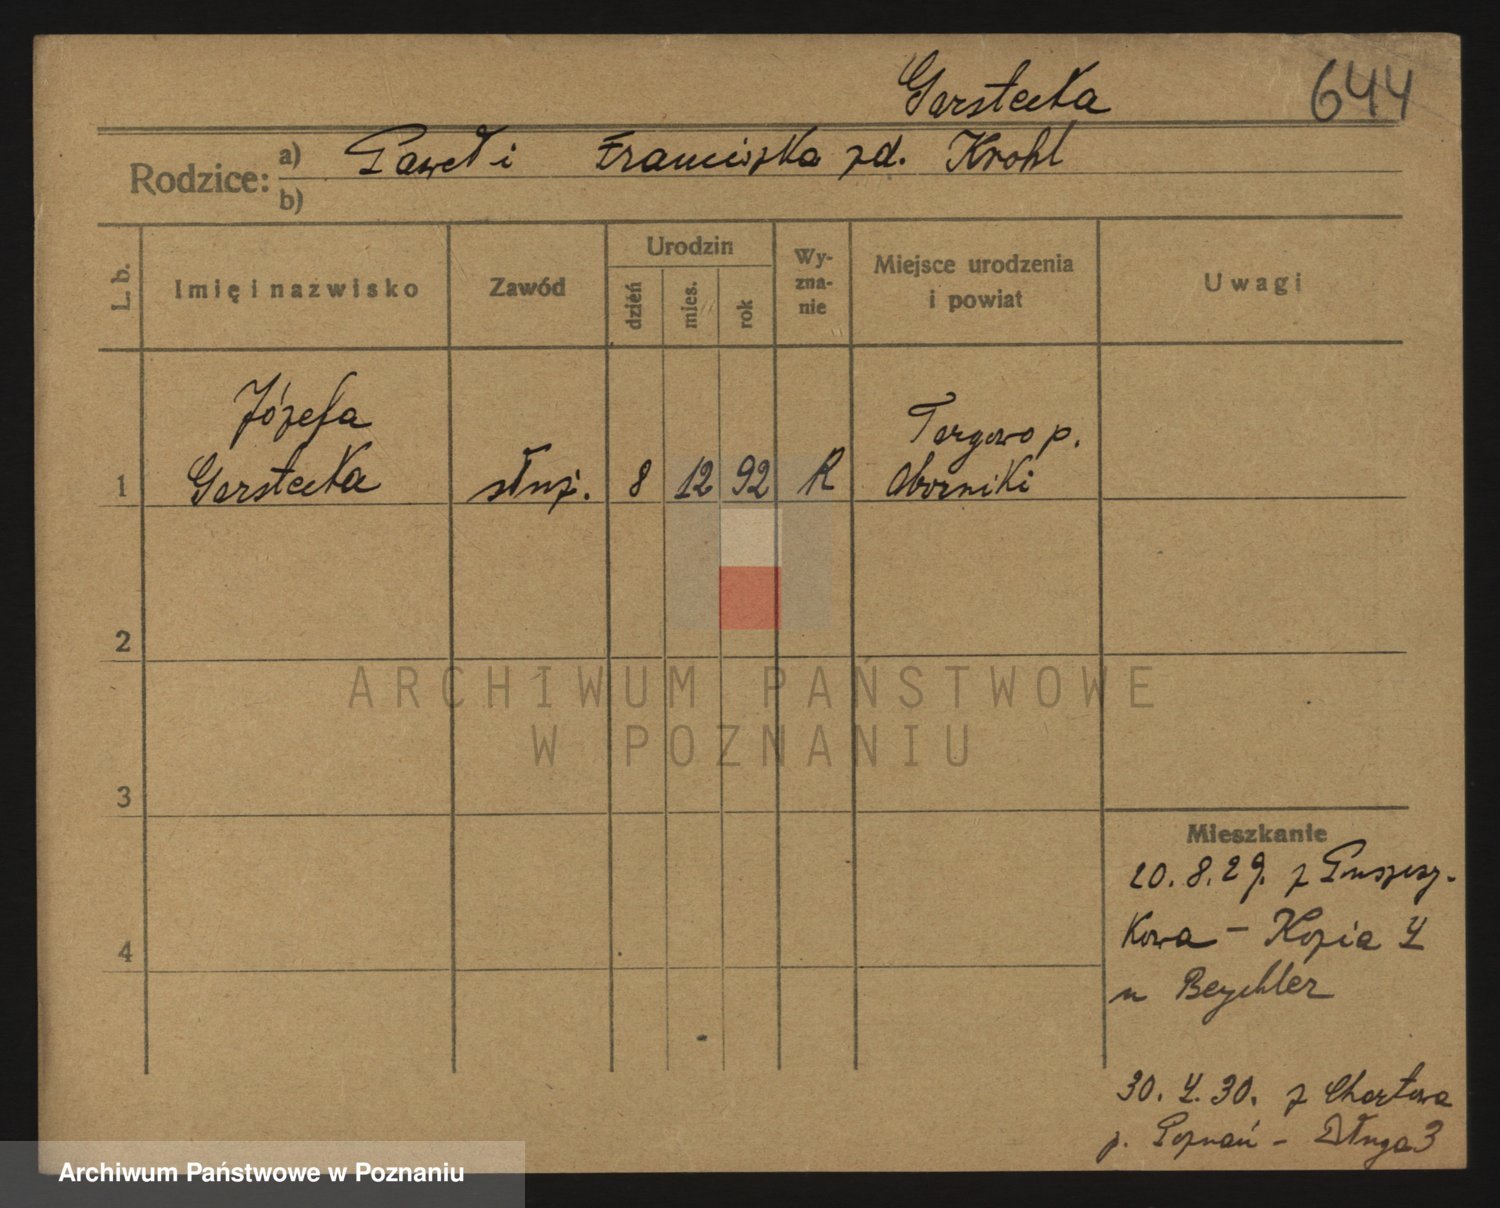 Garstecka 644
Rodzice: a) Paweł i Franciszka zd. Krohl
b)
L. b. Imię i nazwisko Zawód Urodzin dzień mies. rok Wyznanie Miejsce urodzenia i powiat Uwagi
Józefa
Garstecka
1 służ. 8 12 92 R
Targowo p.
Oborniki
2
3
4
Mieszkanie
20. 8. 29. z Puszczy-
kowa - Kozia 4
u Beychler
30. 4. 30. z Chartowa
p. Poznań - Długa 3
ARCHIWUM PAŃSTWOWE
W POZNANIU
Archiwum Państwowe w Poznaniu